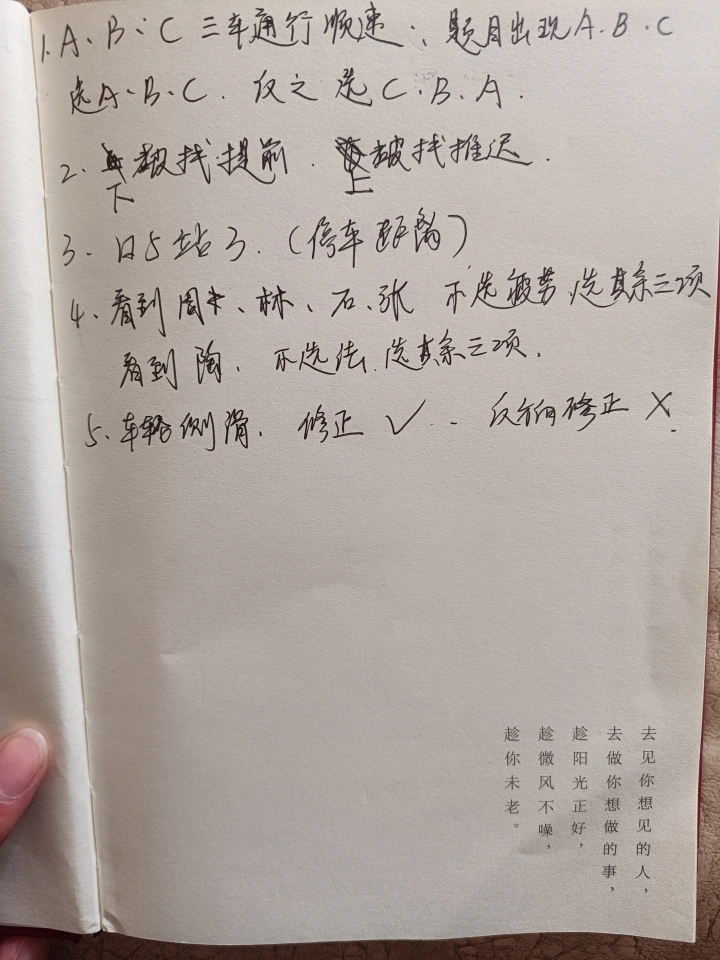 1. A、B、C 三车通行顺速：题目出现A.B.C
选A、B、C. 反之选C.B.A.
2. 下坡找提前. 上坡找推迟.
3. 口5站3. (停车距离)
4. 看到周、林、石、张 不选疲劳,选其余三项
看到陶, 不选法. 选其余三项.
5. 车轮侧滑. 修正 ✓. 反方向修正 X.
去见你想见的人，
去做你想做的事，
趁阳光正好，
趁微风不噪，
趁你未老。